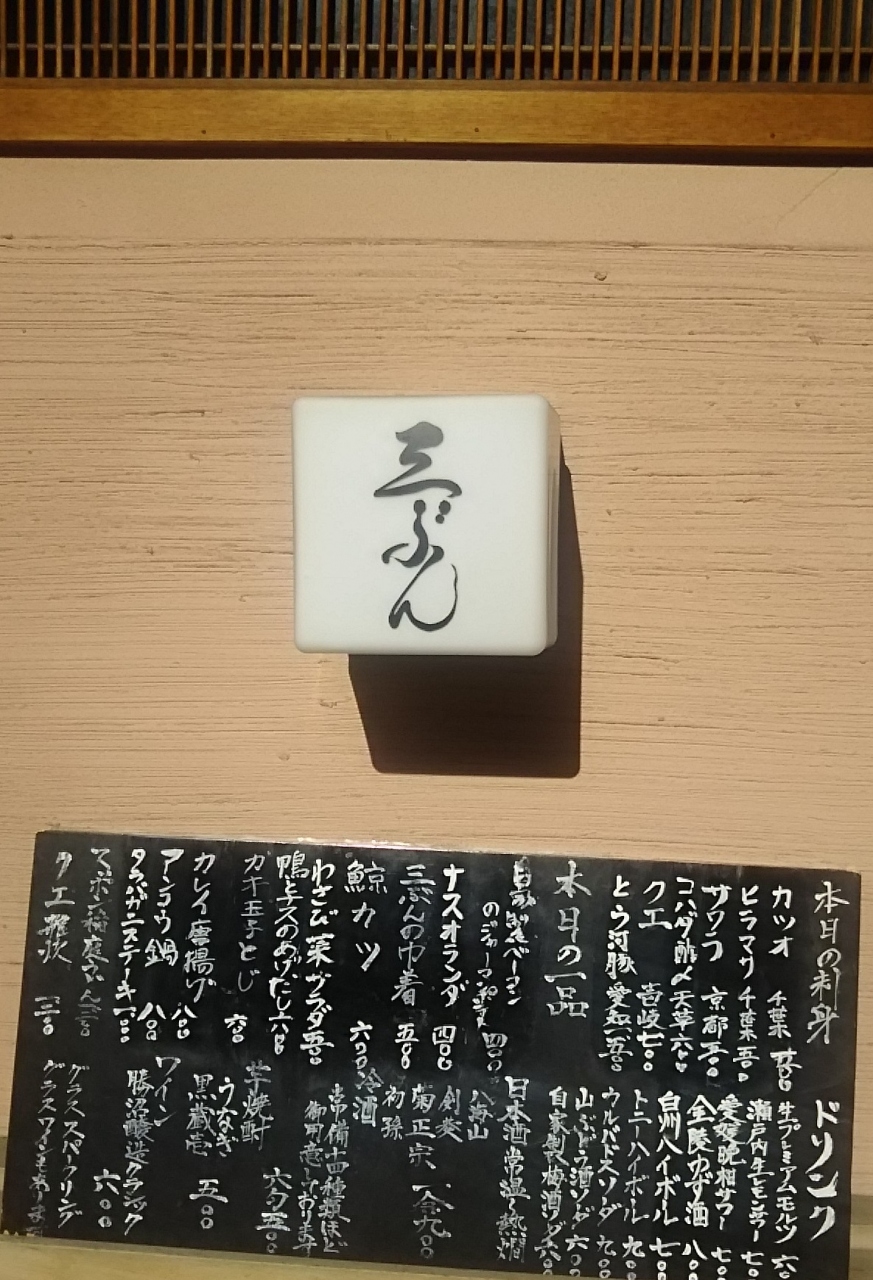 三ぶん
本日の刺身
カツオ 千葉
ヒラマサ 千葉
サワラ 京都
コハダ酢〆 天草
クエ 壱岐 七〇〇
とらふ河豚 愛知
本日の一品
自家製ベーコン
のジャーマンポテト 四〇〇
ナスオランダ 四〇〇
三ぶんの巾着 五〇〇
鯨カツ 六〇〇
わさび菜サラダ
鴨とナスのあげだし 六八〇
玉子とじ
カレイ唐揚げ 八〇〇
アンコウ鍋 八〇〇
タラバガニステーキ
稲庭うどん
クエ雑炊
ドリンク
生プレミアムモルツ
瀬戸内生レモンサワー 七〇〇
愛媛晩柑サワー 七〇〇
金陵ゆず酒 八〇〇
白州ハイボール 七〇〇
トニーハイボール 九〇〇
ウルバドスソーダ 九〇〇
山ぶどう酒ソーダ 六〇〇
自家製梅酒ソーダ 六〇〇
日本酒 常温〜熱燗
八海山
剣菱
菊正宗 一合九〇〇
初孫
冷酒
常備十四種類ほど
御用意しております
芋焼酎 六勺五〇〇
うなぎ
黒蔵壱 五〇〇
ワイン
勝沼醸造クラシック 六〇〇
グラススパークリング
グラスワインもあります